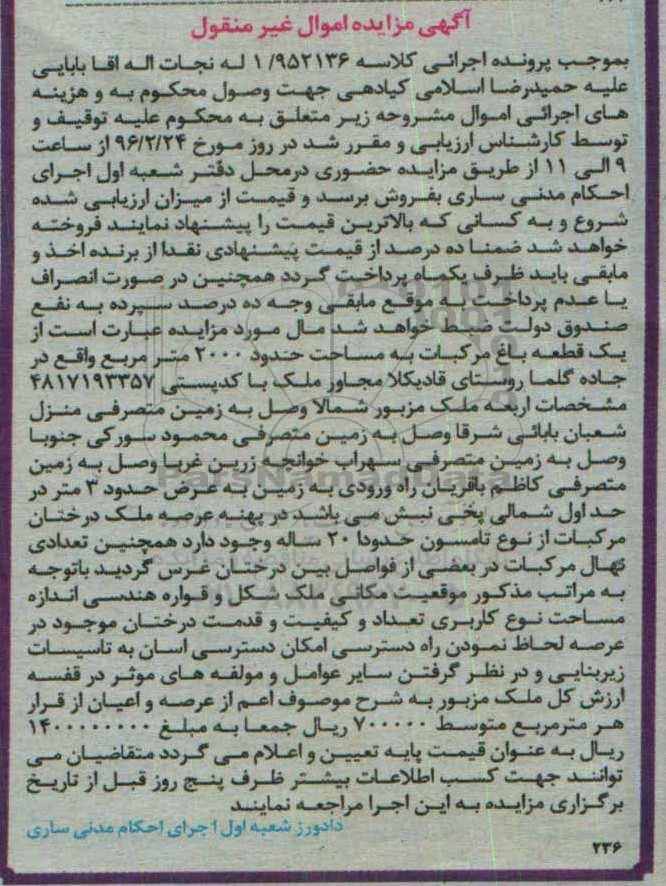 آگهی مزایده اموال غیر منقول
بموجب پرونده اجرائی کلاسه ۱/۹۵۲۱۳۶ له نجات اله اقا بابایی
علیه حمیدرضا اسلامی کیادهی جهت وصول محکوم به و هزینه
های اجرائی اموال مشروحه زیر متعلق به محکوم علیه توقیف و
توسط کارشناس ارزیابی و مقرر شد در روز مورخ ۹۶/۲/۲۴ از ساعت
۹ الی ۱۱ از طریق مزایده حضوری درمحل دفتر شعبه اول اجرای
احکام مدنی ساری بفروش برسد و قیمت از میزان ارزیابی شده
شروع و به کسانی که بالاترین قیمت را پیشنهاد نمایند فروخته
خواهد شد ضمنا ده درصد از قیمت پیشنهادی نقدا از برنده اخذ و
مابقی باید ظرف یکماه پرداخت گردد همچنین در صورت انصراف
یا عدم پرداخت به موقع مابقی وجه ده درصد سپرده به نفع
صندوق دولت ضبط خواهد شد مال مورد مزایده عبارت است از
یک قطعه باغ مرکبات به مساحت حدود ۲۰۰۰ متر مربع واقع در
جاده گلما روستای قادیکلا مجاور ملک با کدپستی ۴۸۱۷۱۹۳۳۵۷
مشخصات اربعه ملک مزبور شمالا وصل به زمین متصرفی منزل
شعبان بابائی شرقا وصل به زمین متصرفی محمود سورکی جنوبا
وصل به زمین متصرفی سهراب خوانچه زرین غربا وصل به زمین
متصرفی کاظم باقریان راه ورودی به زمین به عرض حدود ۳ متر در
حد اول شمالی پخی نبش می باشد در پهنه عرصه ملک درختان
مرکبات از نوع تامسون حدودا ۲۰ ساله وجود دارد همچنین تعدادی
نهال مرکبات در بعضی از فواصل بین درختان غرس گردید باتوجه
به مراتب مذکور موقعیت مکانی ملک شکل و قواره هندسی اندازه
مساحت نوع کاربری تعداد و کیفیت و قدمت درختان موجود در
عرصه لحاظ نمودن راه دسترسی امکان دسترسی اسان به تاسیسات
زیربنایی و در نظر گرفتن سایر عوامل و مولفه های موثر در قفسه
ارزش کل ملک مزبور به شرح موصوف اعم از عرصه و اعیان از قرار
هر مترمربع متوسط ۷۰۰۰۰۰ ریال جمعا به مبلغ ۱۴۰۰۰۰۰۰۰۰
ریال به عنوان قیمت پایه تعیین و اعلام می گردد متقاضیان می
توانند جهت کسب اطلاعات بیشتر ظرف پنج روز قبل از تاریخ
برگزاری مزایده به این اجرا مراجعه نمایند
دادورز شعبه اول اجرای احکام مدنی ساری
۲۳۶
ParsNamadData